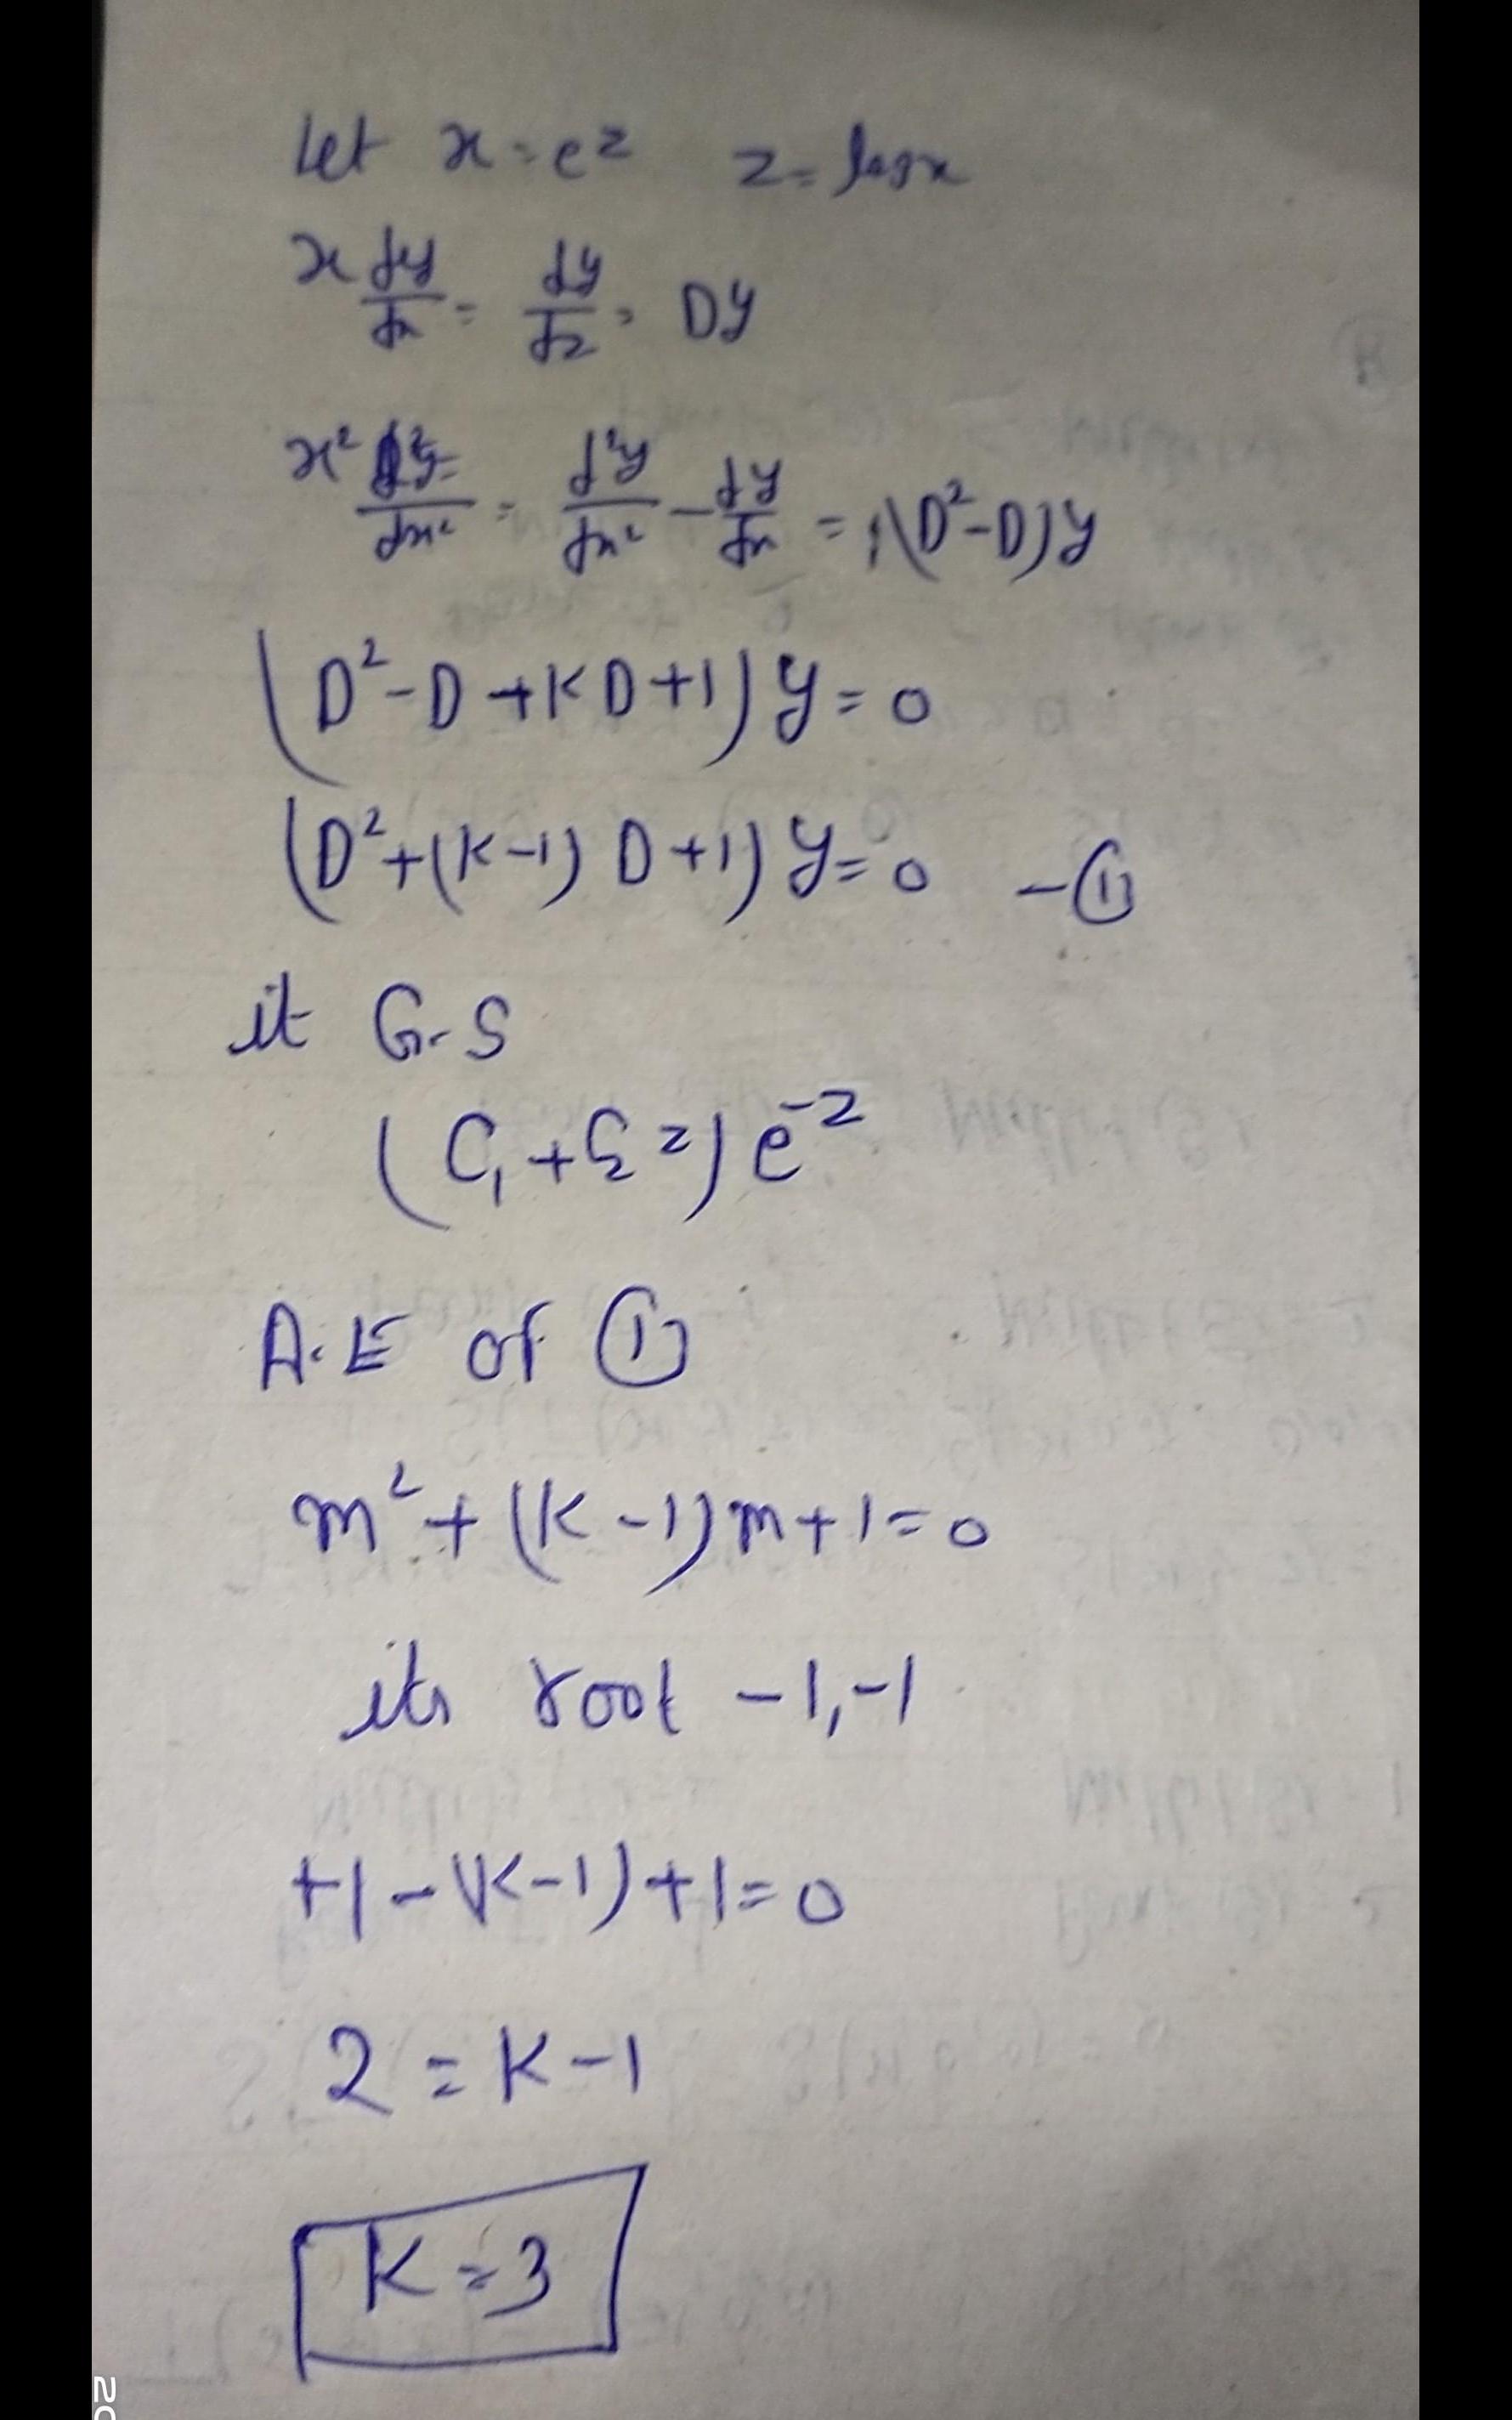 Let x = e^z z = log x
x dy/dx = dy/dz = Dy
x² d²y/dx² = d²y/dx² - dy/dx = (D²-D)y
(D²-D+KD+1)y=0
(D²+(K-1)D+1)y=0 -①
it G.S
(C₁+C₂z)e^-z
A.E of ①
m²+(K-1)m+1=0
its root -1,-1
+1-(K-1)+1=0
2=K-1
K=3